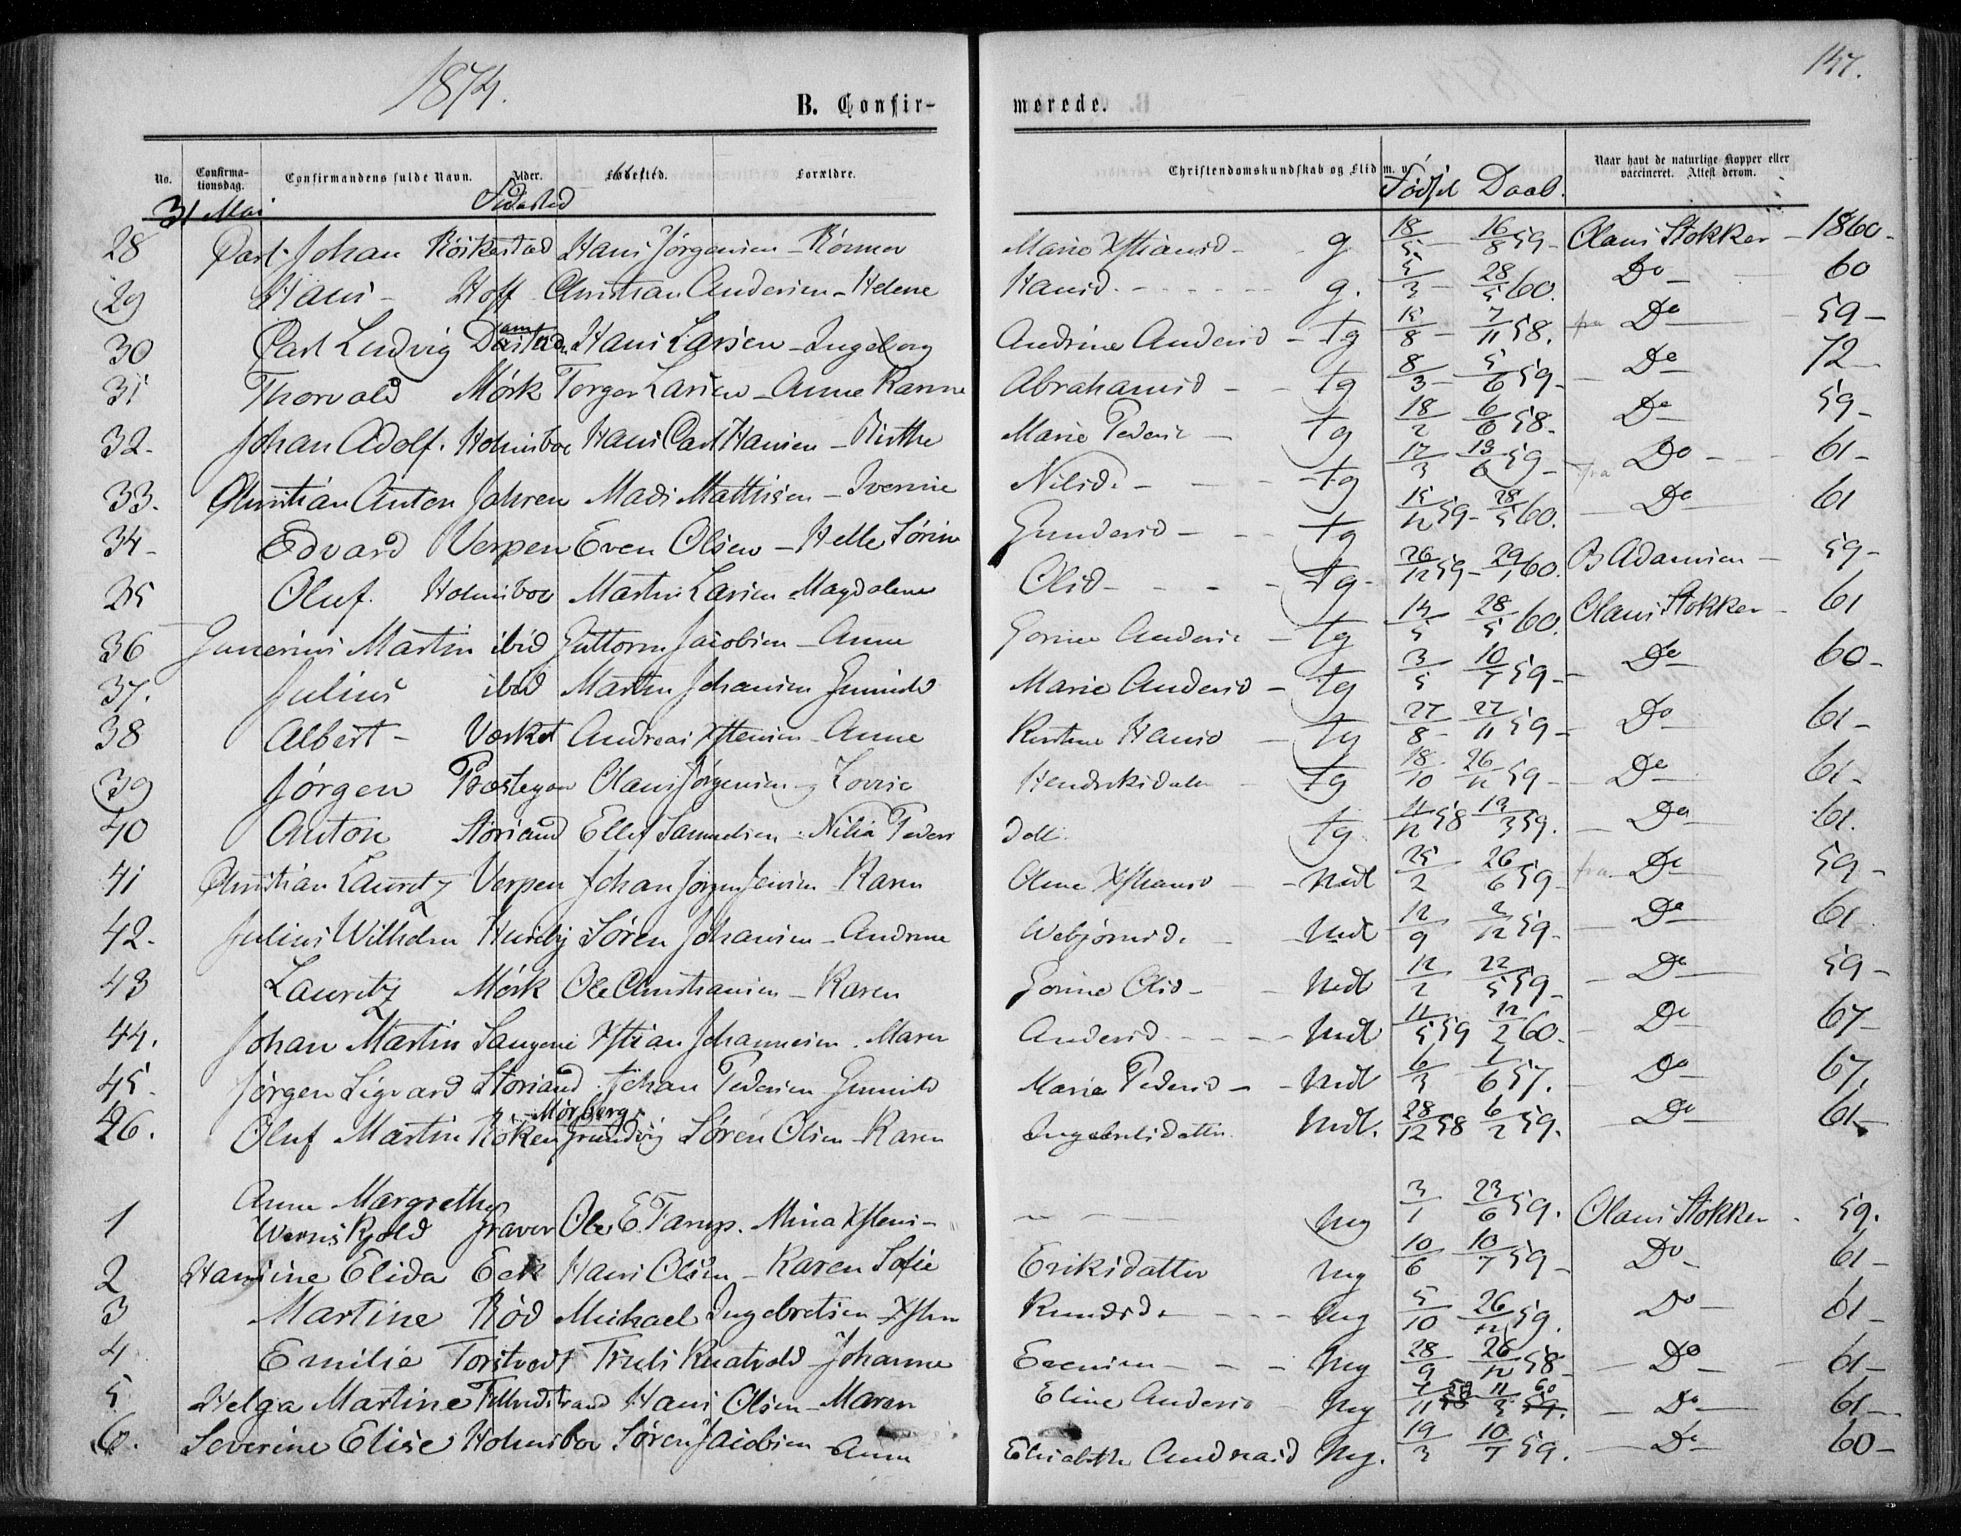 1874.
147.
B. Confir-
merede.
No. Confirmationsdag. Confirmandens fulde Navn. Alder. Forældre. Christendomskundskab og Flid m. v. Fødsel Daab. Naar havt de naturlige Kopper eller vaccineret. Attest derom.
31 Mai
28 Carl Johan Röikestad Hans Jörgensen - Marie Xstiansd - g. 18/5 - 16/8 59 - Olaus Stokker - 1860 -
29 Hans - Hoff Christian Andersen - Helene Hansd. - g. 5/3 - 28/5 60. Do - 60
30 Carl Ludvig Hans Larsen - Ingeborg Andrine Andersd - tg 15/8 - 7/11 58. fra Do - 59 -
31 Thorvald Mörk Torger Larsen - Anne Karine Abrahamsd - tg 8/3 - 5/6 59 - Do 72
32. Johan Adolf. Holmsboe Hans Carl Hansen - Birthe Marie Peders - tg 18/2 6/6 58. Do 59 -
33. Christian Anton Jahren Mads Mathisen - Iverine Nilsd. - tg 17/3 13/6 59 - fra Do - 61 -
34 - Edvard Verpen Even Olsen - Helle Sörine Gundersd - tg 15/12 59 - 28/5 60. Do 61
35 Oluf. Holmsboe Martin Larsen Magdalene Olsd - tg - 26/12 59 - 29/1 60. B Adamsen - 59 -
36 Gunerius Martin ibid Guttorm Jacobsen - Anne Gorine Anders - tg 14/5 28/5 60. Olaus Stokker - 61
37. Julius ibid Martin Johansen Gunild Marie Andersd - tg 3/5 10/7 59 - Do 60 -
38 Albert - Verket Andreas Xstensen - Anne Kirstine Hansd tg 27/8 - 27/11 59 - Do 61 -
39 Jörgen Præstegan Olaus Jörgensen og Lovise Hendriksdatr tg 18/10 26/12 59 - Do 61 -
40 Anton Störsand Ellef Samuelsen - Nilia Peders Datt. tg. 11/12 58 19/3 59. Do 61.
41 Christian Lauritz Verpen Johan Jörgen Jensen - Karen Oline Xstiansd - Mdl 25/2 26/6 59 fra Do 59 -
42. Julius Wilhelm Huseby Sören Johansen - Andrine Webjörnsd. Mdl 12/9 2/12 59 - Do 61
43 Lauritz Mörk Ole Christiansen - Karen Gorine Olsd - Mdl 12/2 22/5 59 - Do 59 -
44. Johan Martin Xstian Johannesen. Maren Andersd - Mdl 11/5 59 12/2 60. Do 67 -
45. Jörgen Sigvard Störsand Johan Pedersen Gunild Marie Pedersd - Mdl 6/3 1/6 57. Do 67.
Mörberg
26. Oluf Martin Röken Grundvig Sören Olsen - Karen Ingebretsdatter Mdl. 28/12 58 6/2 59. Do 61
Anne Margrethe
1 Wernskjold Graver Ole E. Mina Xstens - Mg 3/1 23/6 59. Olaus Stokker. 59.
2 Hansine Elida Eek Hans Olsen - Karen Sofie Eriksdatter Mg 10/6 10/7 59 - Do 61 -
3 Martine Röd Michael Ingebretsen - Xstin Knudsd. - Mg 5/10 26/12 59. Do - 61 -
4 Emilie Torstvedt Truls Knatvold - Johanne Evensen - Mg 28/9 26/12 58 - Do - 61 -
5 Helga Martine Hans Olsen - Maren Eline Andersd Mg 11/5 60 Do - 61 -
6. Severine Elise Holmsboe Sören Jacobsen - Anne Elisabeth Andreasd Mg. 19/3 10/7 59. Do 60 -